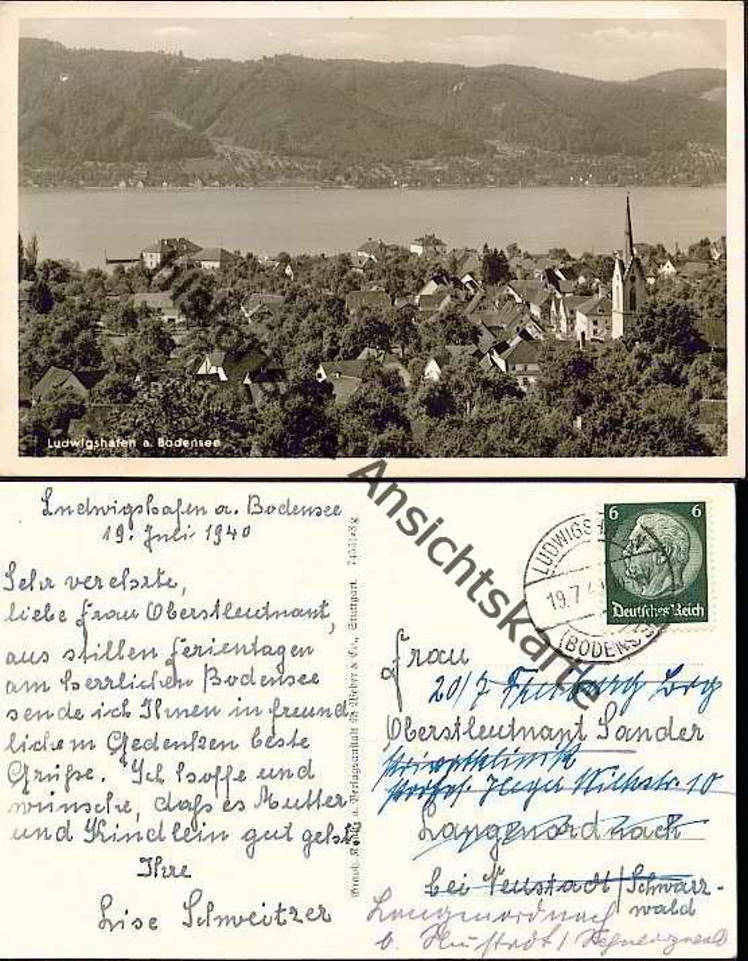 Ludwigshafen a. Bodensee
Ansichtskarte
Ludwigshafen a. Bodensee
19. Juli 1940
Sehr verehrte,
liebe Frau Oberstleutnant,
aus stillen Ferientagen
am herrlichen Bodensee
sende ich Ihnen in freund
lichem Gedenken beste
Grüße. Ich hoffe und
wünsche, daß es Mutter
und Kindlein gut geht
Ihre
Lise Schweitzer
Verlagsanstalt Weber & Co., Stuttgart
LUDWIGSHAFEN
19.7.40
(BODENSEE)
6 6
Deutsches Reich
Frau
20/7 Freiburg Brg
Oberstleutnant Sander
Privatklinik
Profess. Heger Wilhstr. 10
Langenordnach
bei Neustadt/Schwarz-
wald
Langenordnach
b. Neustadt / Schwarzwald